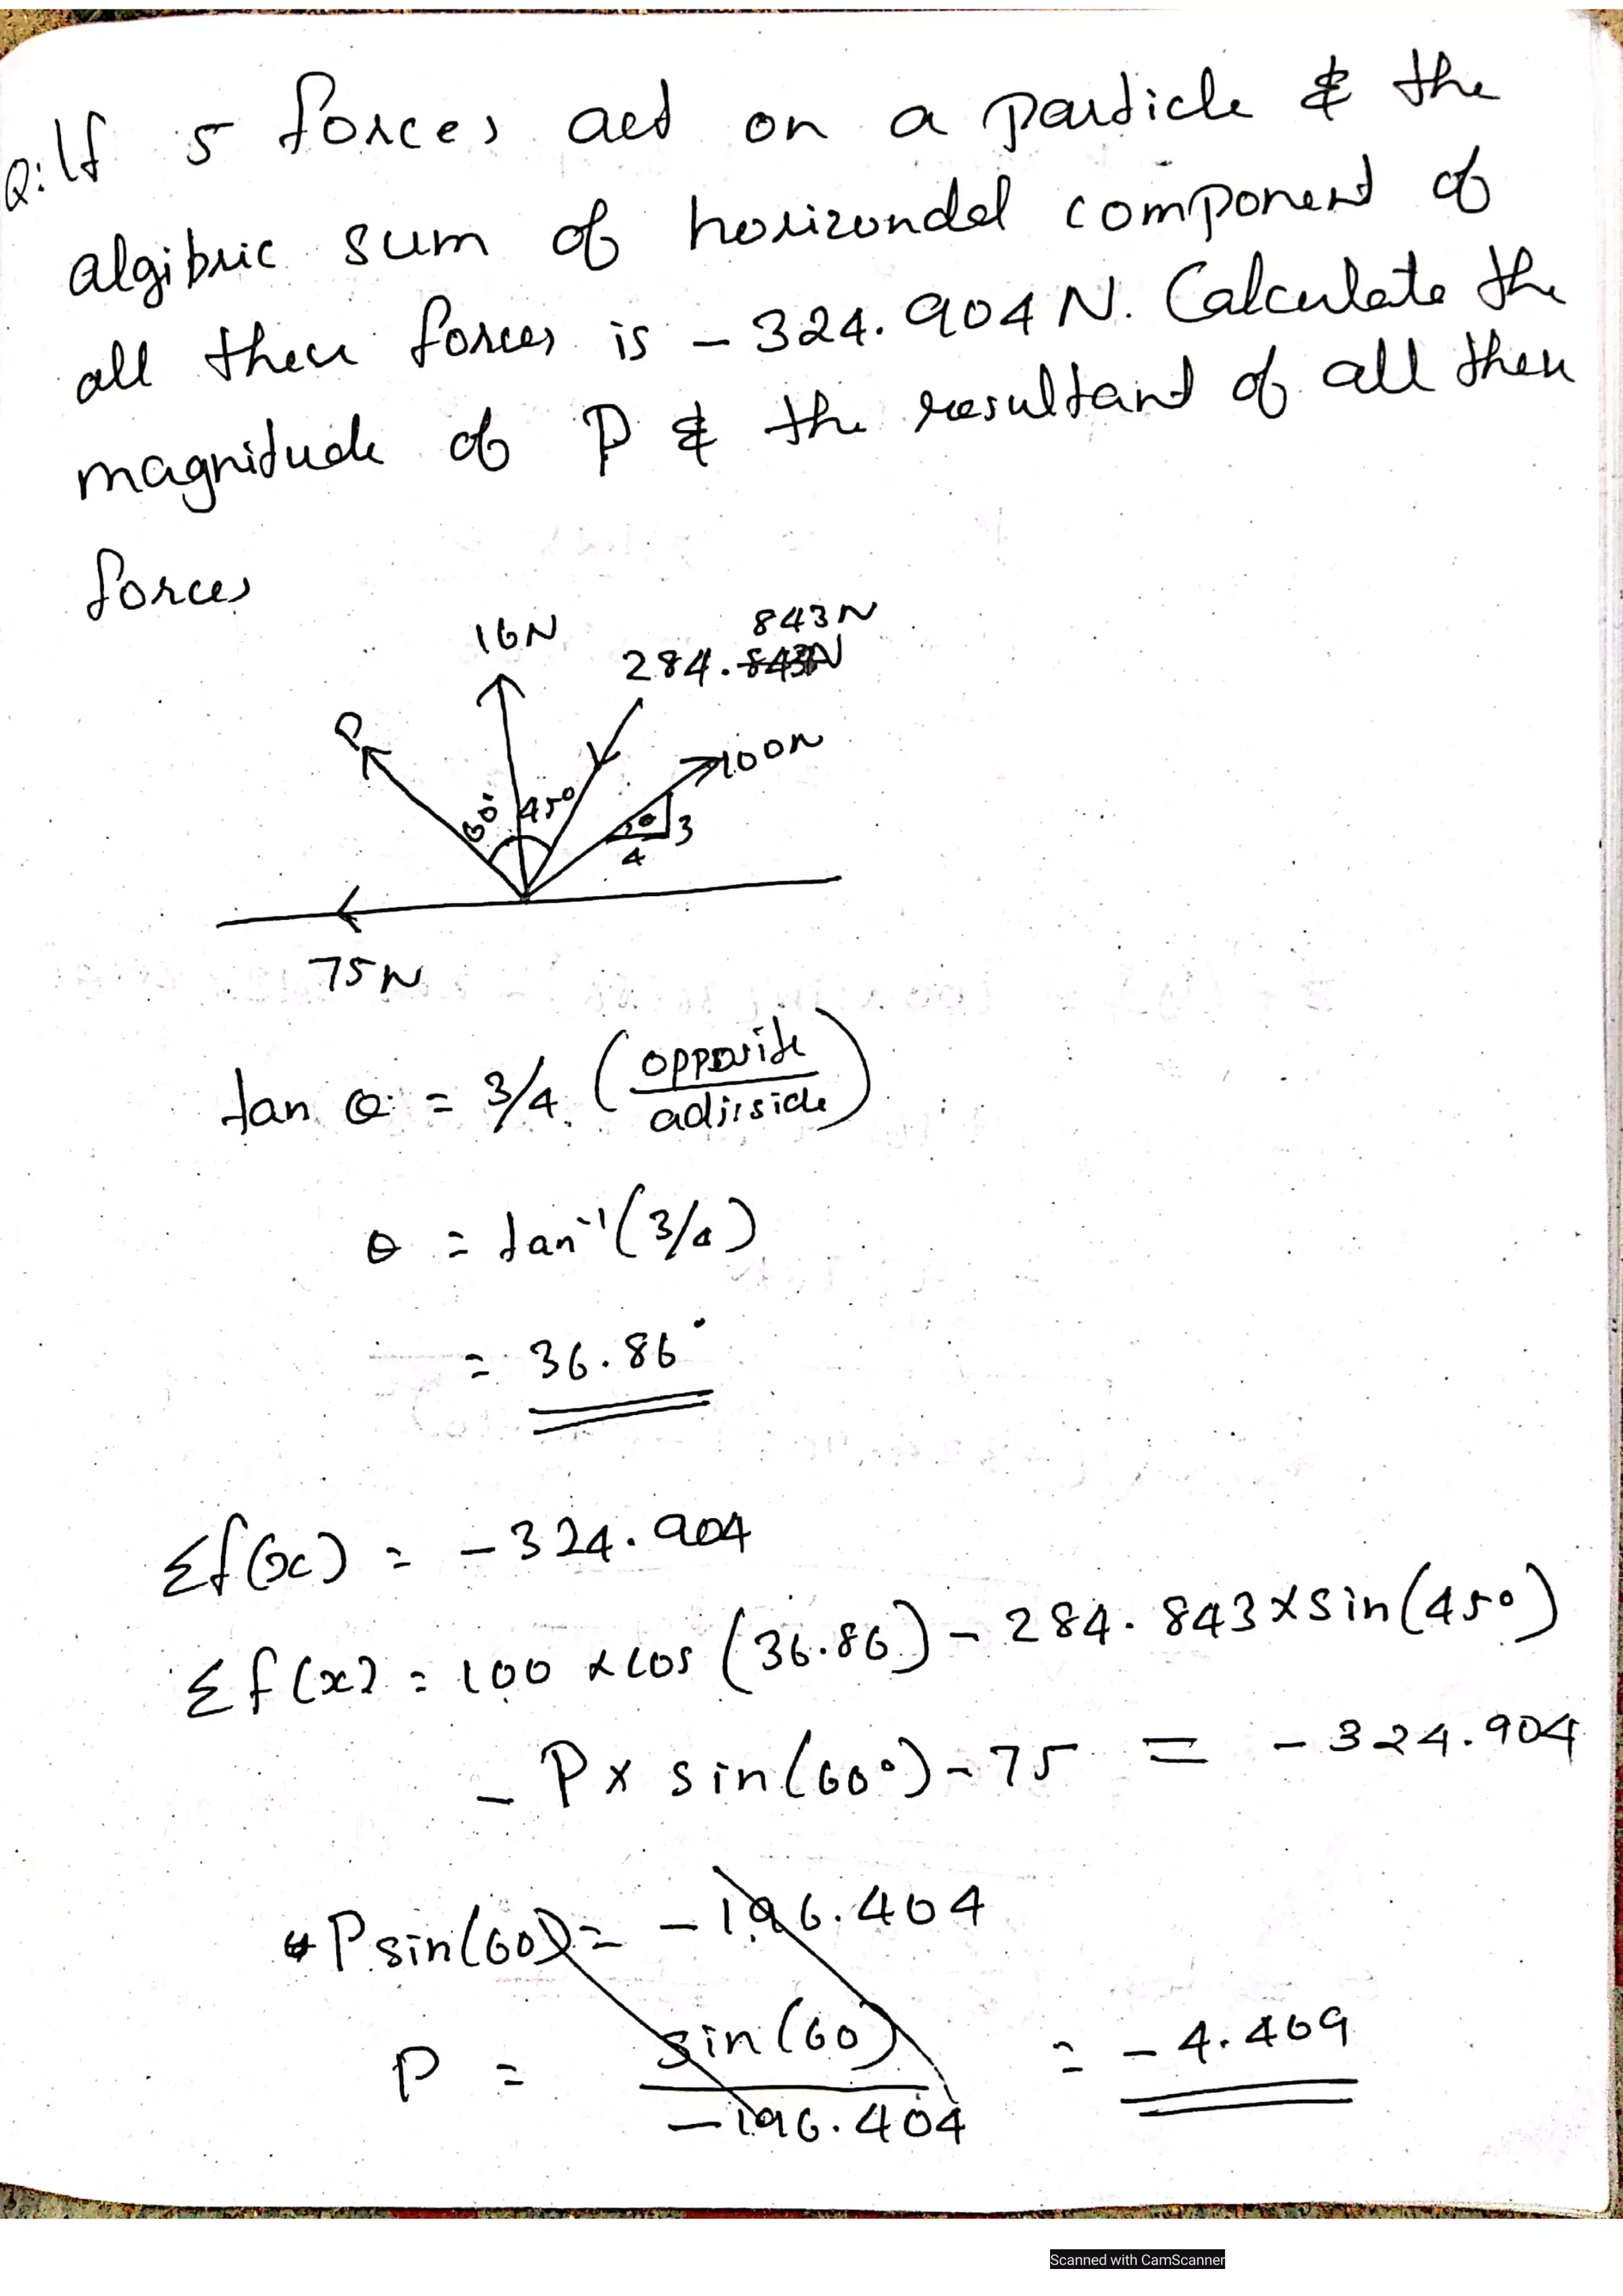 Q: If 5 forces act on a particle & the
algibric sum of horizondal component of
all these forces is - 324.904 N. Calculate the
magnitude of P & the resultant of all these
forces
16N
843N
284.843N
P
100N
60°
45°
θ
3
4
75N
tan θ = 3/4 (opposite/adj:side)
θ = tan⁻¹(3/4)
= 36.86°
Σf(x) = - 324.904
Σf(x) = 100 x cos (36.86) - 284.843 x sin(45°)
- P x sin(60°) - 75 = - 324.904
P sin(60) = - 196.404
P = sin(60) / - 196.404 = - 4.409
Scanned with CamScanner